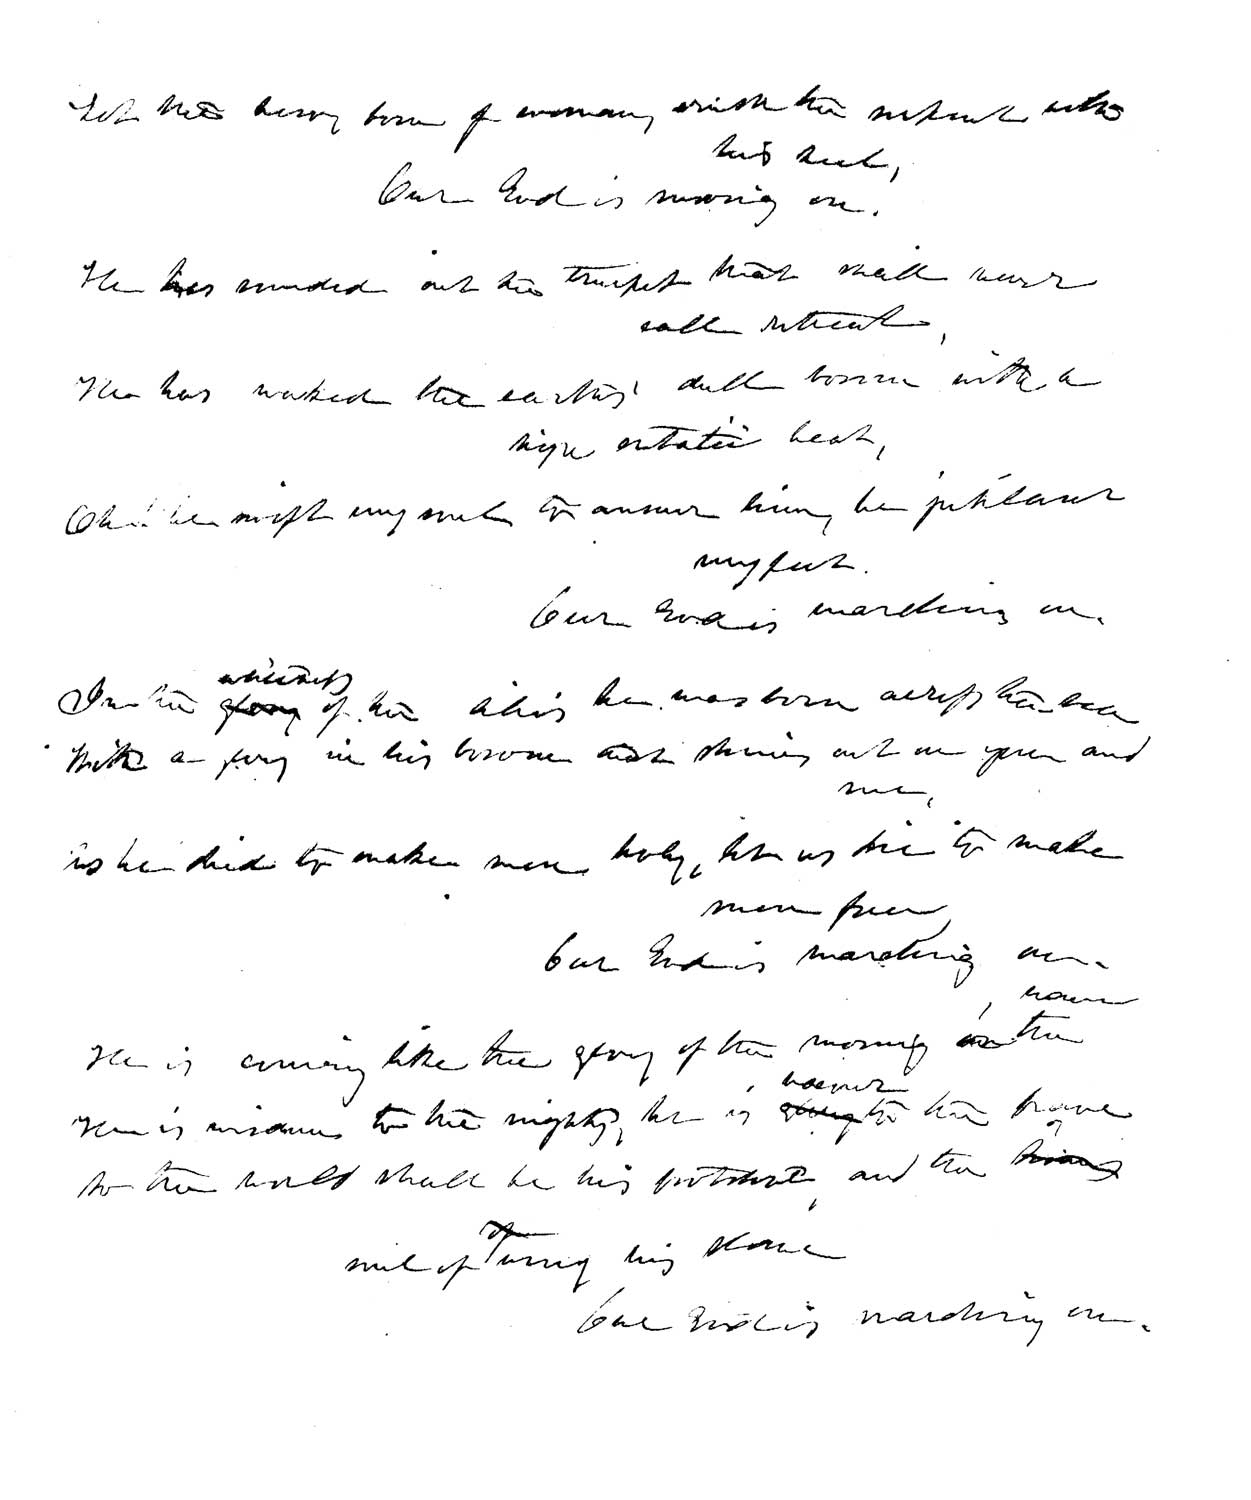 Let the hero, born of woman, crush the serpent with
his heel,
Our God is moving on.
He has sounded out the trumpet that shall never
call retreat,
He has waked the earth's dull bosom with a
high ecstatic beat,
Oh! be swift my soul to answer him, be jubilant
my feet.
Our God is marching on.
whiteness
In the glory of the lilies he was born across the sea
With a glory in his bosom that shines out on you and
me,
As he died to make men holy, let us die to make
men free,
Our God is marching on.
wave
He is coming like the glory of the morning on the
He is wisdom to the mighty, he is to the brave
So the world shall be his footstool, and the
soul of wrong his slave
Our God is marching on.